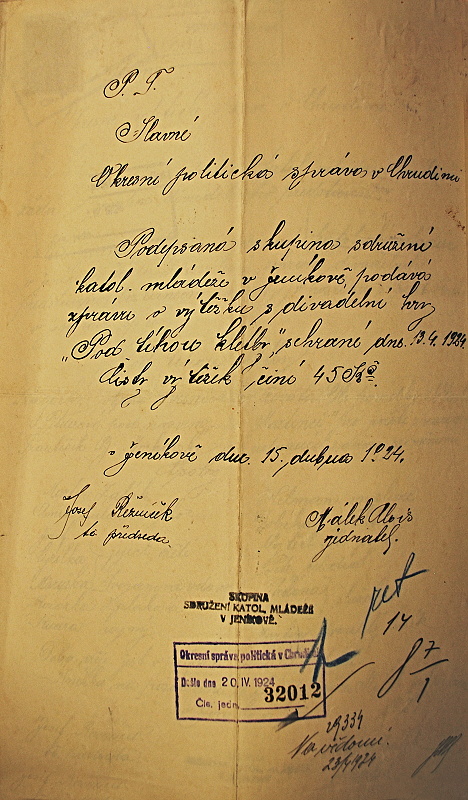 P. T.
Slavné
Okresní politická správa v Chrudimi
Podepsaná skupina sdružení
katol. mládeže v Jeníkově, podává
zprávu o výtěžku z divadelní hry
„Pod tíhou kletby", sehrané dne. 13.4. 1924
Čistý výtěžek činí 45 Kč.
v Jeníkově dne. 15. dubna 1924.
Josef Řezníček
t. č. předseda.
Málek Alois
jednatel.
SKUPINA
SDRUŽENÍ KATOL. MLÁDEŽE
V JENÍKOVĚ.
Okresní správa politická v Chrudimi
Došlo dne 20. IV. 1924
Čís. jedn. 32012
14
87
1
29334
Na vědomí.
23/4 1924